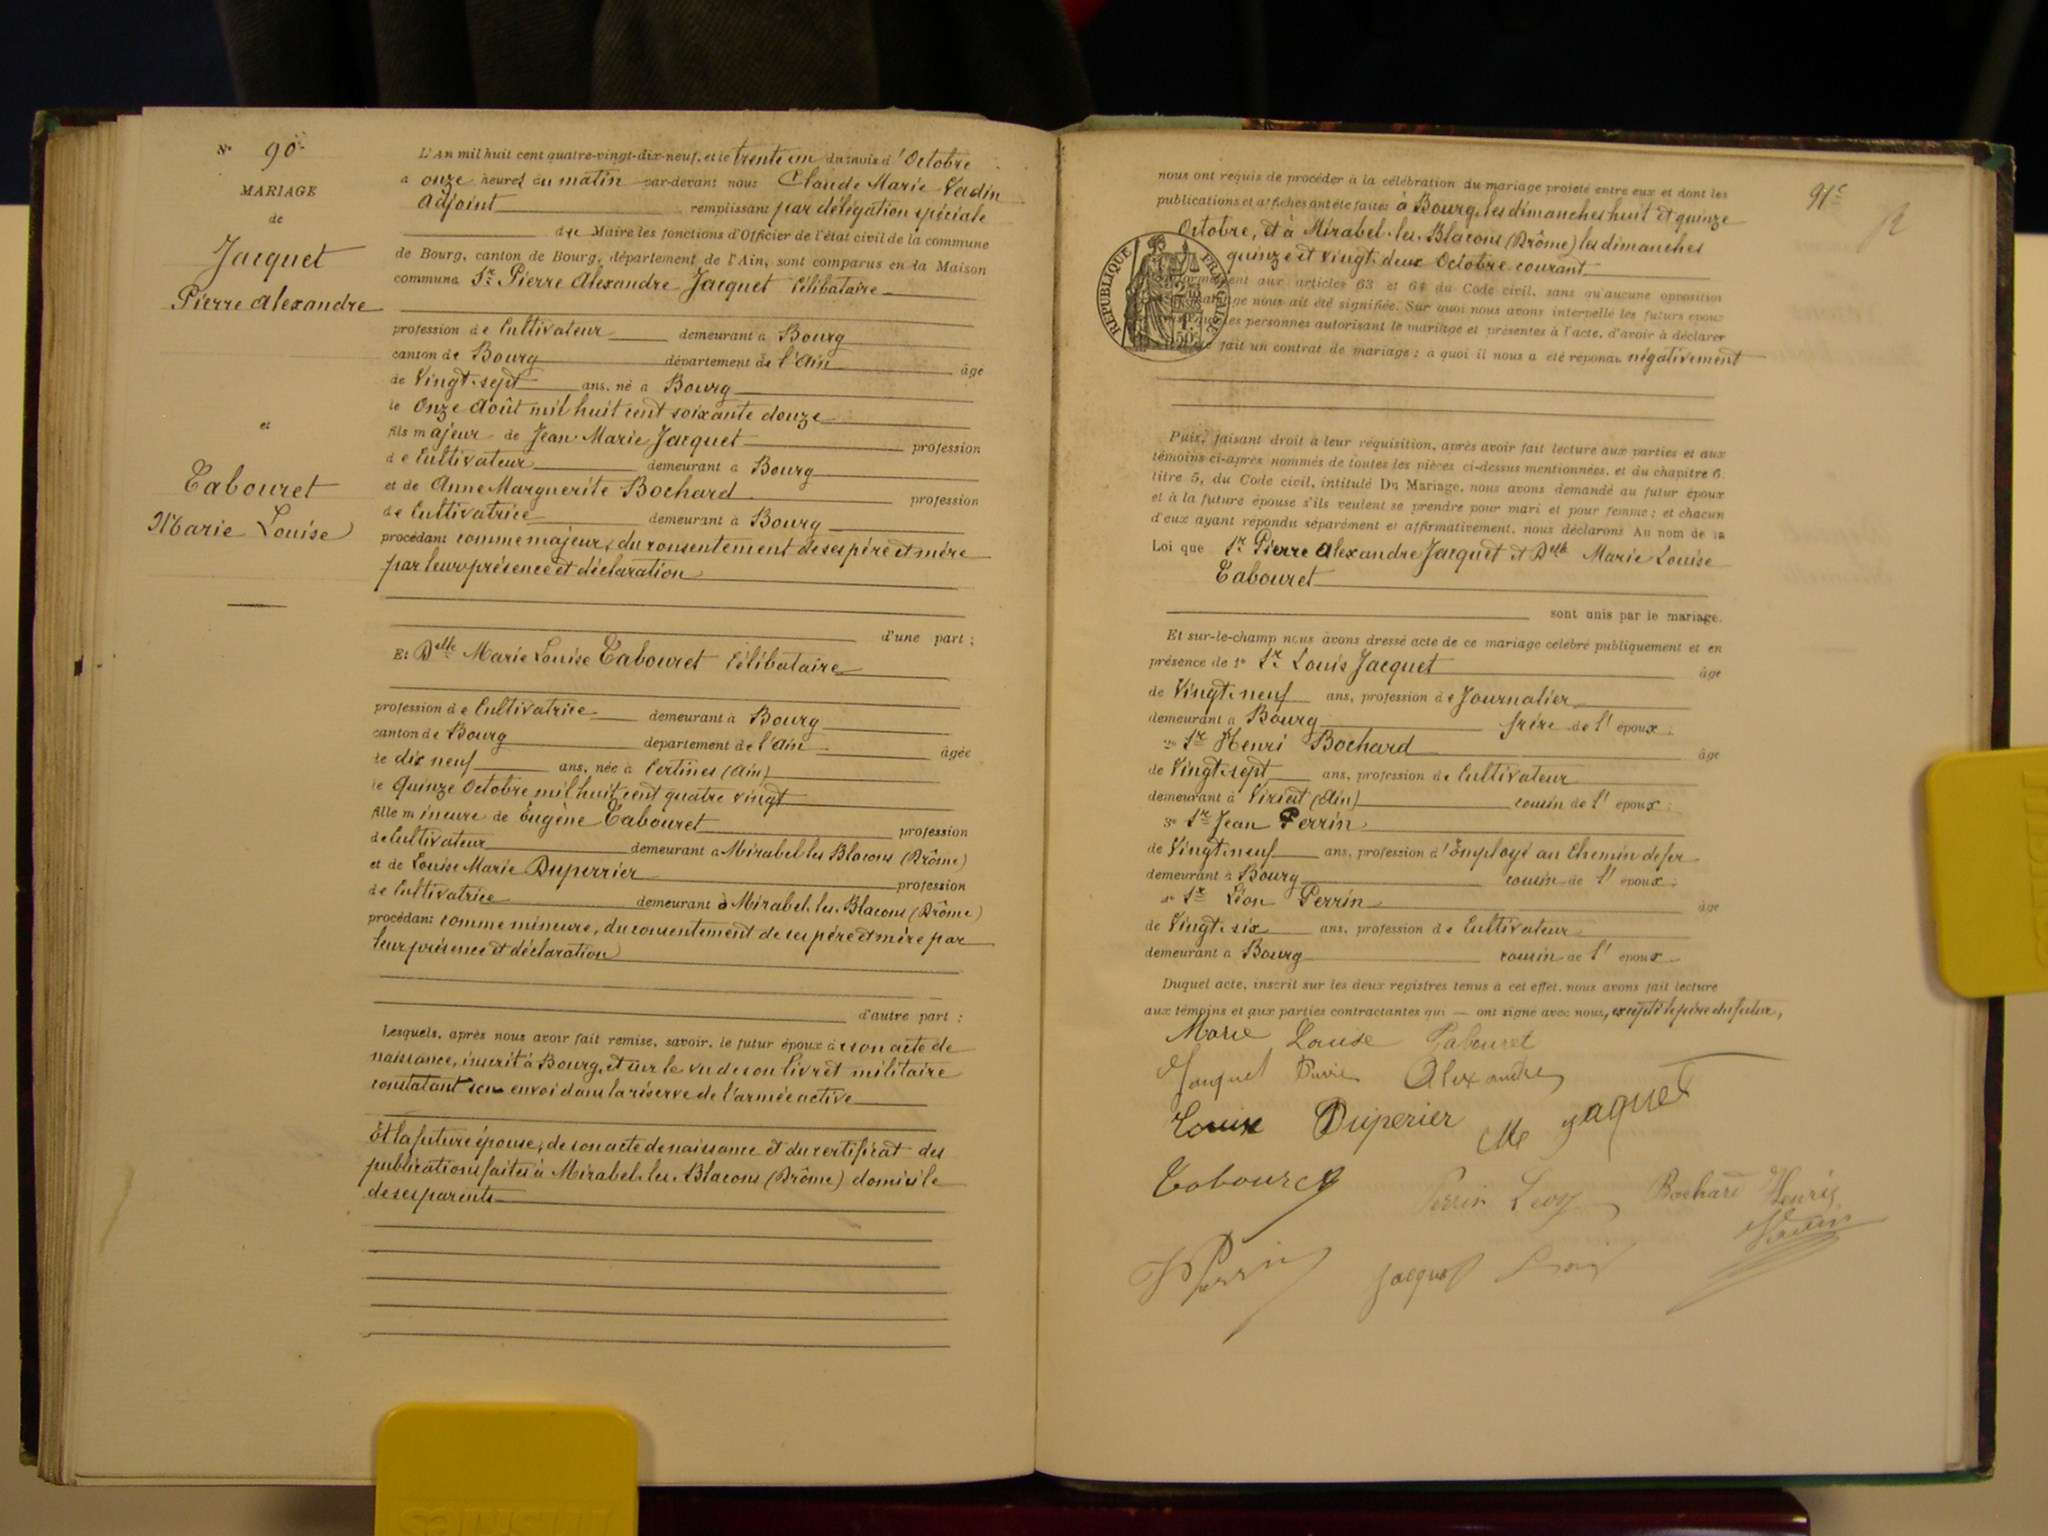 N° 90
MARIAGE
de
Jacquet
Pierre Alexandre
et
Tabouret
Marie Louise
L'An mil huit cent quatre-vingt-dix-neuf, et le trente un du mois d'Octobre
à onze heures du matin par-devant nous Claude Marie Vadin
adjoint remplissant par délégation spéciale
du Maire les fonctions d'Officier de l'état civil de la commune
de Bourg, canton de Bourg, département de l'Ain, sont comparus en la Maison
commune Sr Pierre Alexandre Jacquet Célibataire
profession de Cultivateur demeurant à Bourg
canton de Bourg département de l'Ain âgé
de Vingt-sept ans, né à Bourg
le Onze Août mil huit cent soixante douze
fils majeur de Jean Marie Jacquet profession
de Cultivateur demeurant à Bourg
et de Anne Marguerite Bochard profession
de Cultivatrice demeurant à Bourg
procédant comme majeur, du consentement de ses père et mère
par leur présence et déclaration
d'une part ;
Et Delle Marie Louise Tabouret Célibataire
profession de Cultivatrice demeurant à Bourg
canton de Bourg département de l'Ain âgée
de dix neuf ans, née à Certines (Ain)
le Quinze Octobre mil huit cent quatre vingt
fille mineure de Eugène Tabouret profession
de Cultivateur demeurant à Mirabel-les-Blacons (Drôme)
et de Louise Marie Duperrier profession
de Cultivatrice demeurant à Mirabel-les-Blacons (Drôme)
procédant comme mineure, du consentement de ses père et mère par
leur présence et déclaration
d'autre part ;
Lesquels, après nous avoir fait remise, savoir, le futur époux de son acte de
naissance, inscrit à Bourg, et sur le vu de son livret militaire
constatant son envoi dans la réserve de l'armée active
Et la future épouse, de son acte de naissance et du certificat des
publications faites à Mirabel-les-Blacons (Drôme) domicile
de ses parents
91e
nous ont requis de procéder à la célébration du mariage projeté entre eux et dont les
publications et affiches ont été faites à Bourg, les dimanches huit et quinze
Octobre, et à Mirabel-les-Blacons (Drôme) les dimanches
quinze et vingt-deux Octobre courant
RÉPUBLIQUE FRANÇAISE
aux articles 63 et 64 du Code civil, sans qu'aucune opposition
nous ait été signifiée. Sur quoi nous avons interpellé les futurs époux
les personnes autorisant le mariage et présentes à l'acte, d'avoir à déclarer
fait un contrat de mariage ; à quoi il nous a été répondu négativement
Puis, faisant droit à leur réquisition, après avoir fait lecture aux parties et aux
témoins ci-après nommés de toutes les pièces ci-dessus mentionnées, et du chapitre 6,
titre 5, du Code civil, intitulé Du Mariage, nous avons demandé au futur époux
et à la future épouse s'ils veulent se prendre pour mari et pour femme ; et chacun
d'eux ayant répondu séparément et affirmativement, nous déclarons Au nom de la
Loi que Sr Pierre Alexandre Jacquet et Delle Marie Louise
Tabouret
sont unis par le mariage.
Et sur-le-champ nous avons dressé acte de ce mariage célébré publiquement et en
présence de 1° Sr Louis Jacquet âgé
de Vingt-neuf ans, profession de Journalier
demeurant à Bourg frère de l'époux ;
2° Sr Henri Bochard âgé
de Vingt-sept ans, profession de Cultivateur
demeurant à Viriat (Ain) cousin de l'époux ;
3° Sr Jean Perrin
de Vingt-neuf ans, profession d'Employé au Chemin de fer
demeurant à Bourg cousin de l'époux ;
4° Sr Léon Perrin âgé
de Vingt-six ans, profession de Cultivateur
demeurant à Bourg cousin de l'époux
Duquel acte, inscrit sur les deux registres tenus à cet effet, nous avons fait lecture
aux témoins et aux parties contractantes qui — ont signé avec nous, excepté le père du futur,
Marie Louise Tabouret
Jacquet Pierre Alexandre
Louise Duperier M Jaquet
Tabouret Perrin Léon Bochard Henri
Vadin
J Perrin Jacquet